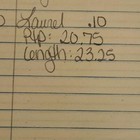 Laurel .10
P4P: 20.75
Length: 23.25